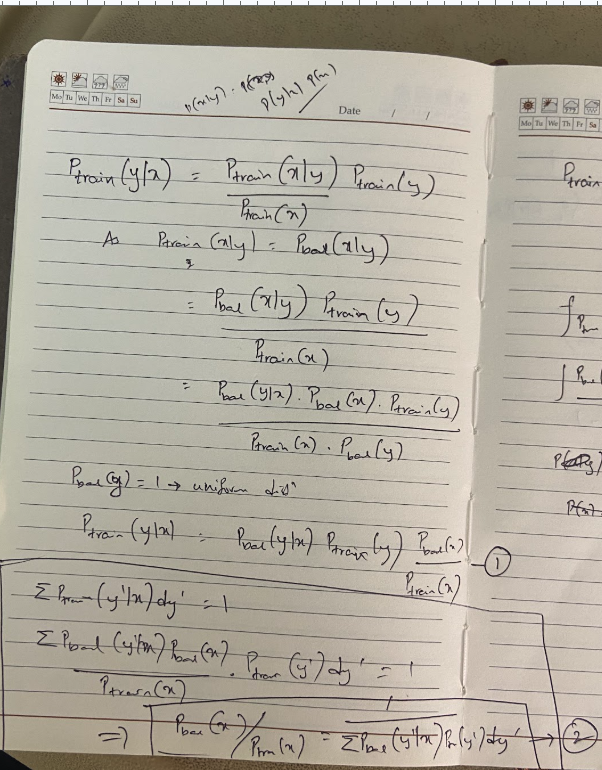 Mo Tu We Th Fr Sa Su
P(x|y) · P(x)
P(y|x) P(x)
Date / /
Ptrain(y|x) = Ptrain(x|y) Ptrain(y)
Ptrain(x)
As Ptrain(x|y) = Pbal(x|y)
= Pbal(x|y) Ptrain(y)
Ptrain(x)
= Pbal(y|x) · Pbal(x) · Ptrain(y)
Ptrain(x) · Pbal(y)
Pbal(y) = 1 → uniform dist^n
Ptrain(y|x) = Pbal(y|x) Ptrain(y) Pbal(x) — ①
Ptrain(x)
Σ Ptrain(y'|x) dy' = 1
Σ Pbal(y'|x) Pbal(x) · Ptrain(y') dy' = 1
Ptrain(x)
1
⇒ Pbal(x) / Ptrn(x) = Σ Pbal(y'|x) Ptr(y') dy' → ②
Mo Tu We Th
Ptrain
∫ Ptrn
∫ Pbal(
P(x)